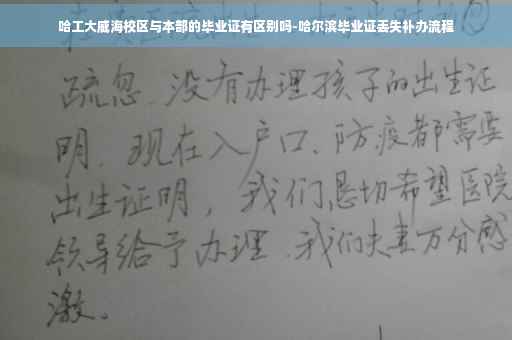 哈工大威海校区与本部的毕业证有区别吗-哈尔滨毕业证丢失补办流程
疏忽、没有办理孩子的出生证
明、现在入户口、防疫都需要
出生证明，我们恳切希望医院
领导给予办理、我们夫妻万分感
激。